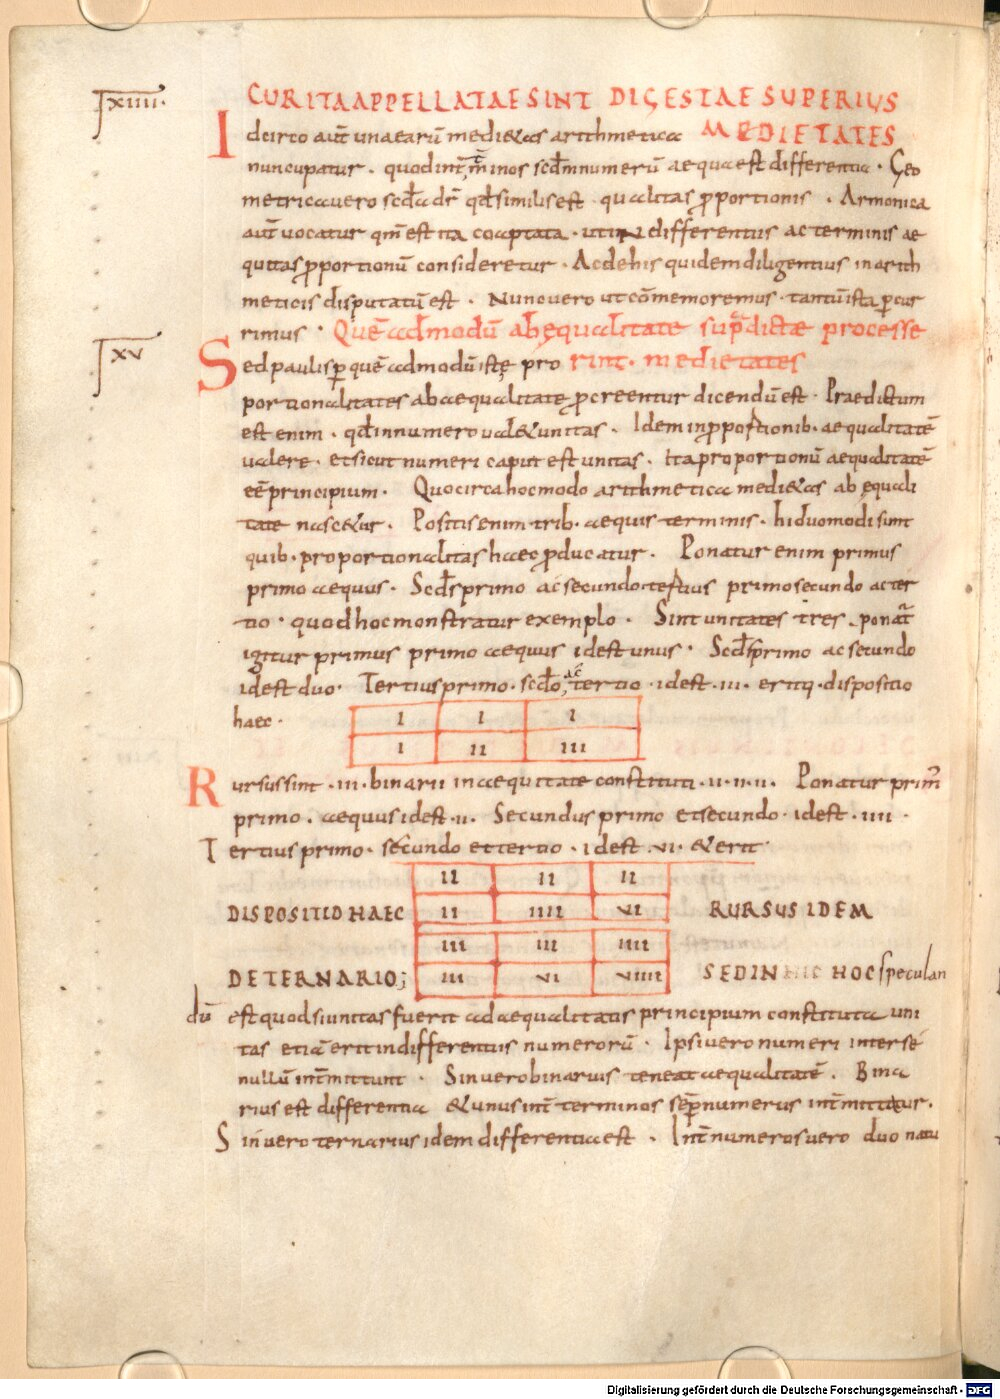 xiiii.
CUR ITA APPELLATAE SINT DIGESTAE SUPERIUS
Idcirco aut̄ una earū medi&as arithmetica MEDIETATES
nuncupatur . quod int̄ t̄minos scdm numerū aequa est differentia . Geo
metrica uero scd̄a dr̄ qd̄ similis est qualitas p̱portionis . Armonica
aut̄ uocatur qm̄ est ita coaptata . ut in differentiis ac terminis ae
quitas p̱portionū consideretur . Ac de his quidem diligentius in arith
meticis disputatū est . Nunc uero ut cōmemoremus . tantū ista p̱cur
rimus . Quē admodū ab ęqualitate sup̄dictae processe
xv
Sed paulisp̱ quē admodū istę pro rint . medietates
portionalitates ab aequalitate p̱creentur dicendū est . Praedictum
est enim . qd̄ in numero ual& unitas . Idem in p̱portionib . aequalitatē
ualere . et sicut numeri caput est unitas . ita proportionū aequalitatē
eē principium . Quocirca hoc modo arithmetica medi&as ab ęquali
tate nasc&ur . Positis enim trib . aequis terminis . hi duo modi sunt
quib . proportionalitas haec p̱ducatur . Ponatur enim primus
primo aequus . Scd̄s primo ac secundo tertius primo secundo ac ter
tio . quod hoc monstratur exemplo . Sint unitates tres . ponat̄
igitur primus primo aequus id est unus . Scd̄s primo ac secundo
id est duo . Tertius primo . scd̄o ac tertio . id est . iii . eritq . dispositio
haec .
I I I
I II III
Rursus sint . iii . binarii in aequitate constituti . ii . ii . ii . Ponatur prim̄
primo . aequus id est . ii . Secundus primo et secundo . id est . iiii .
Tertius primo . secundo et tertio . id est . vi . & erit
II II II
DISPOSITIO HAEC II IIII VI RURSUS IDEM
III III IIII
DE TERNARIO; III VI VIIII SED IN HIC HOC speculan
dū est quod si unitas fuerit ad aequalitatis principium constituta uni
tas etiā erit in differentiis numerorū . Ipsi uero numeri inter sé
nullū int̄mittunt . Sin uero binarius teneat aequalitatē . Bina
rius est differentia & unus int̄ terminos sēp numerus int̄mittatur .
Sin uero ternarius idem differentia est . Int̄ numeros uero duo natu
Digitalisierung gefördert durch die Deutsche Forschungsgemeinschaft - DFG